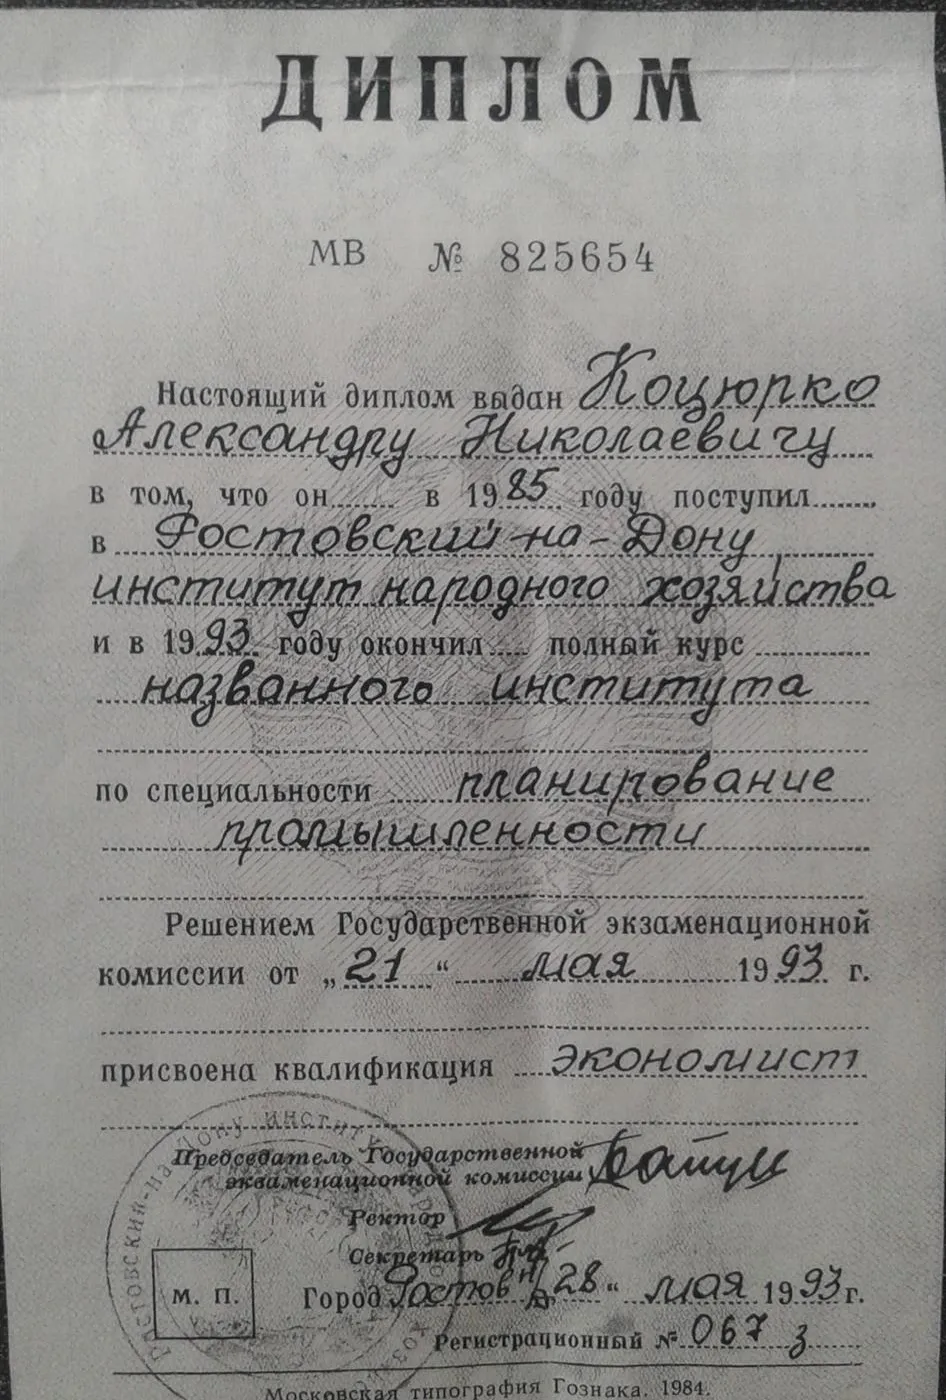 ДИПЛОМ
МВ № 825654
Настоящий диплом выдан Коцюрко
Александру Николаевичу
в том, что он в 1985 году поступил
в Ростовский-на-Дону
институт народного хозяйства
и в 1993 году окончил полный курс
названного института
по специальности планирование
промышленности
Решением Государственной экзаменационной
комиссии от „21“ мая 1993 г.
присвоена квалификация экономист
Председатель Государственной
экзаменационной комиссии
Ректор
Секретарь
М. П.
Город Ростов н/Д „28“ мая 1993 г.
Регистрационный № 067 з
Московская типография Гознака. 1984.
Ростовский-на-Дону институт